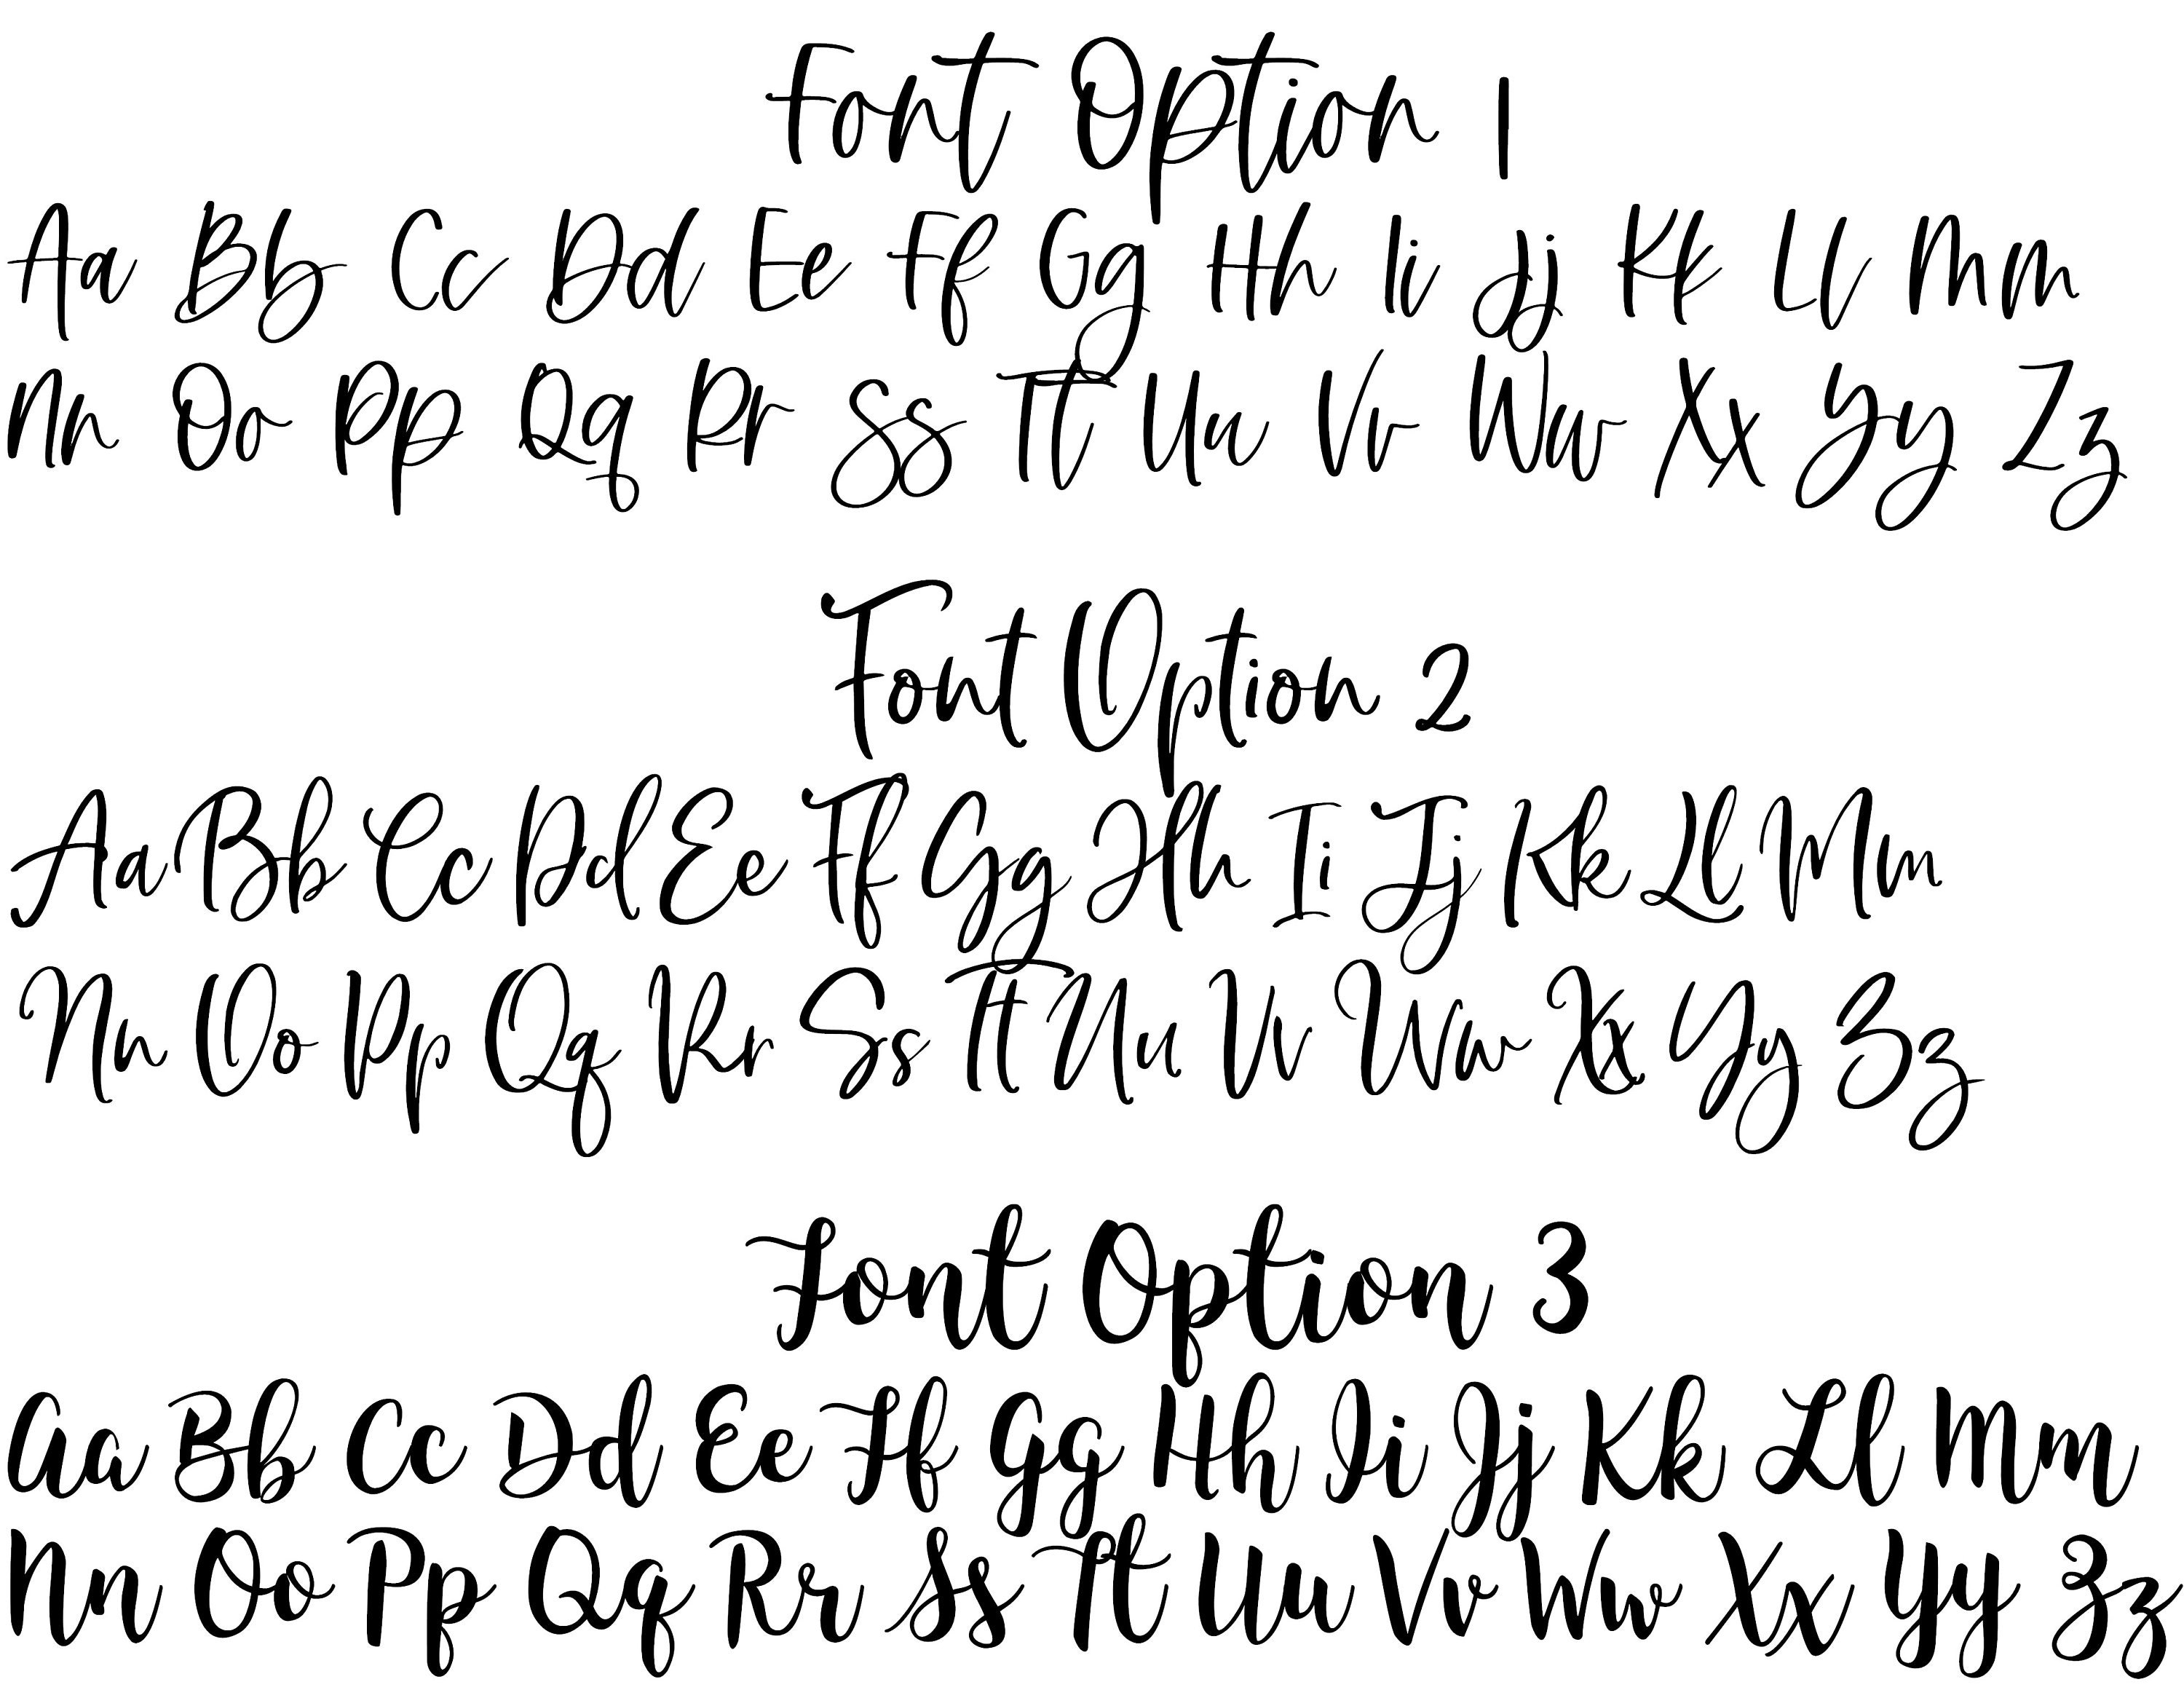 Font Option 1
Aa Bb Cc Dd Ee Ff Gg Hh Ii Jj Kk Ll Mm
Nn Oo Pp Qq Rr Ss Tt Uu Vv Ww Xx Yy Zz
Font Option 2
Aa Bb Cc Dd Ee Ff Gg Hh Ii Jj Kk Ll Mm
Nn Oo Pp Qq Rr Ss Tt Uu Vv Ww Xx Yy Zz
Font Option 3
Aa Bb Cc Dd Ee Ff Gg Hh Ii Jj Kk Ll Mm
Nn Oo Pp Qq Rr Ss Tt Uu Vv Ww Xx Yy Zz